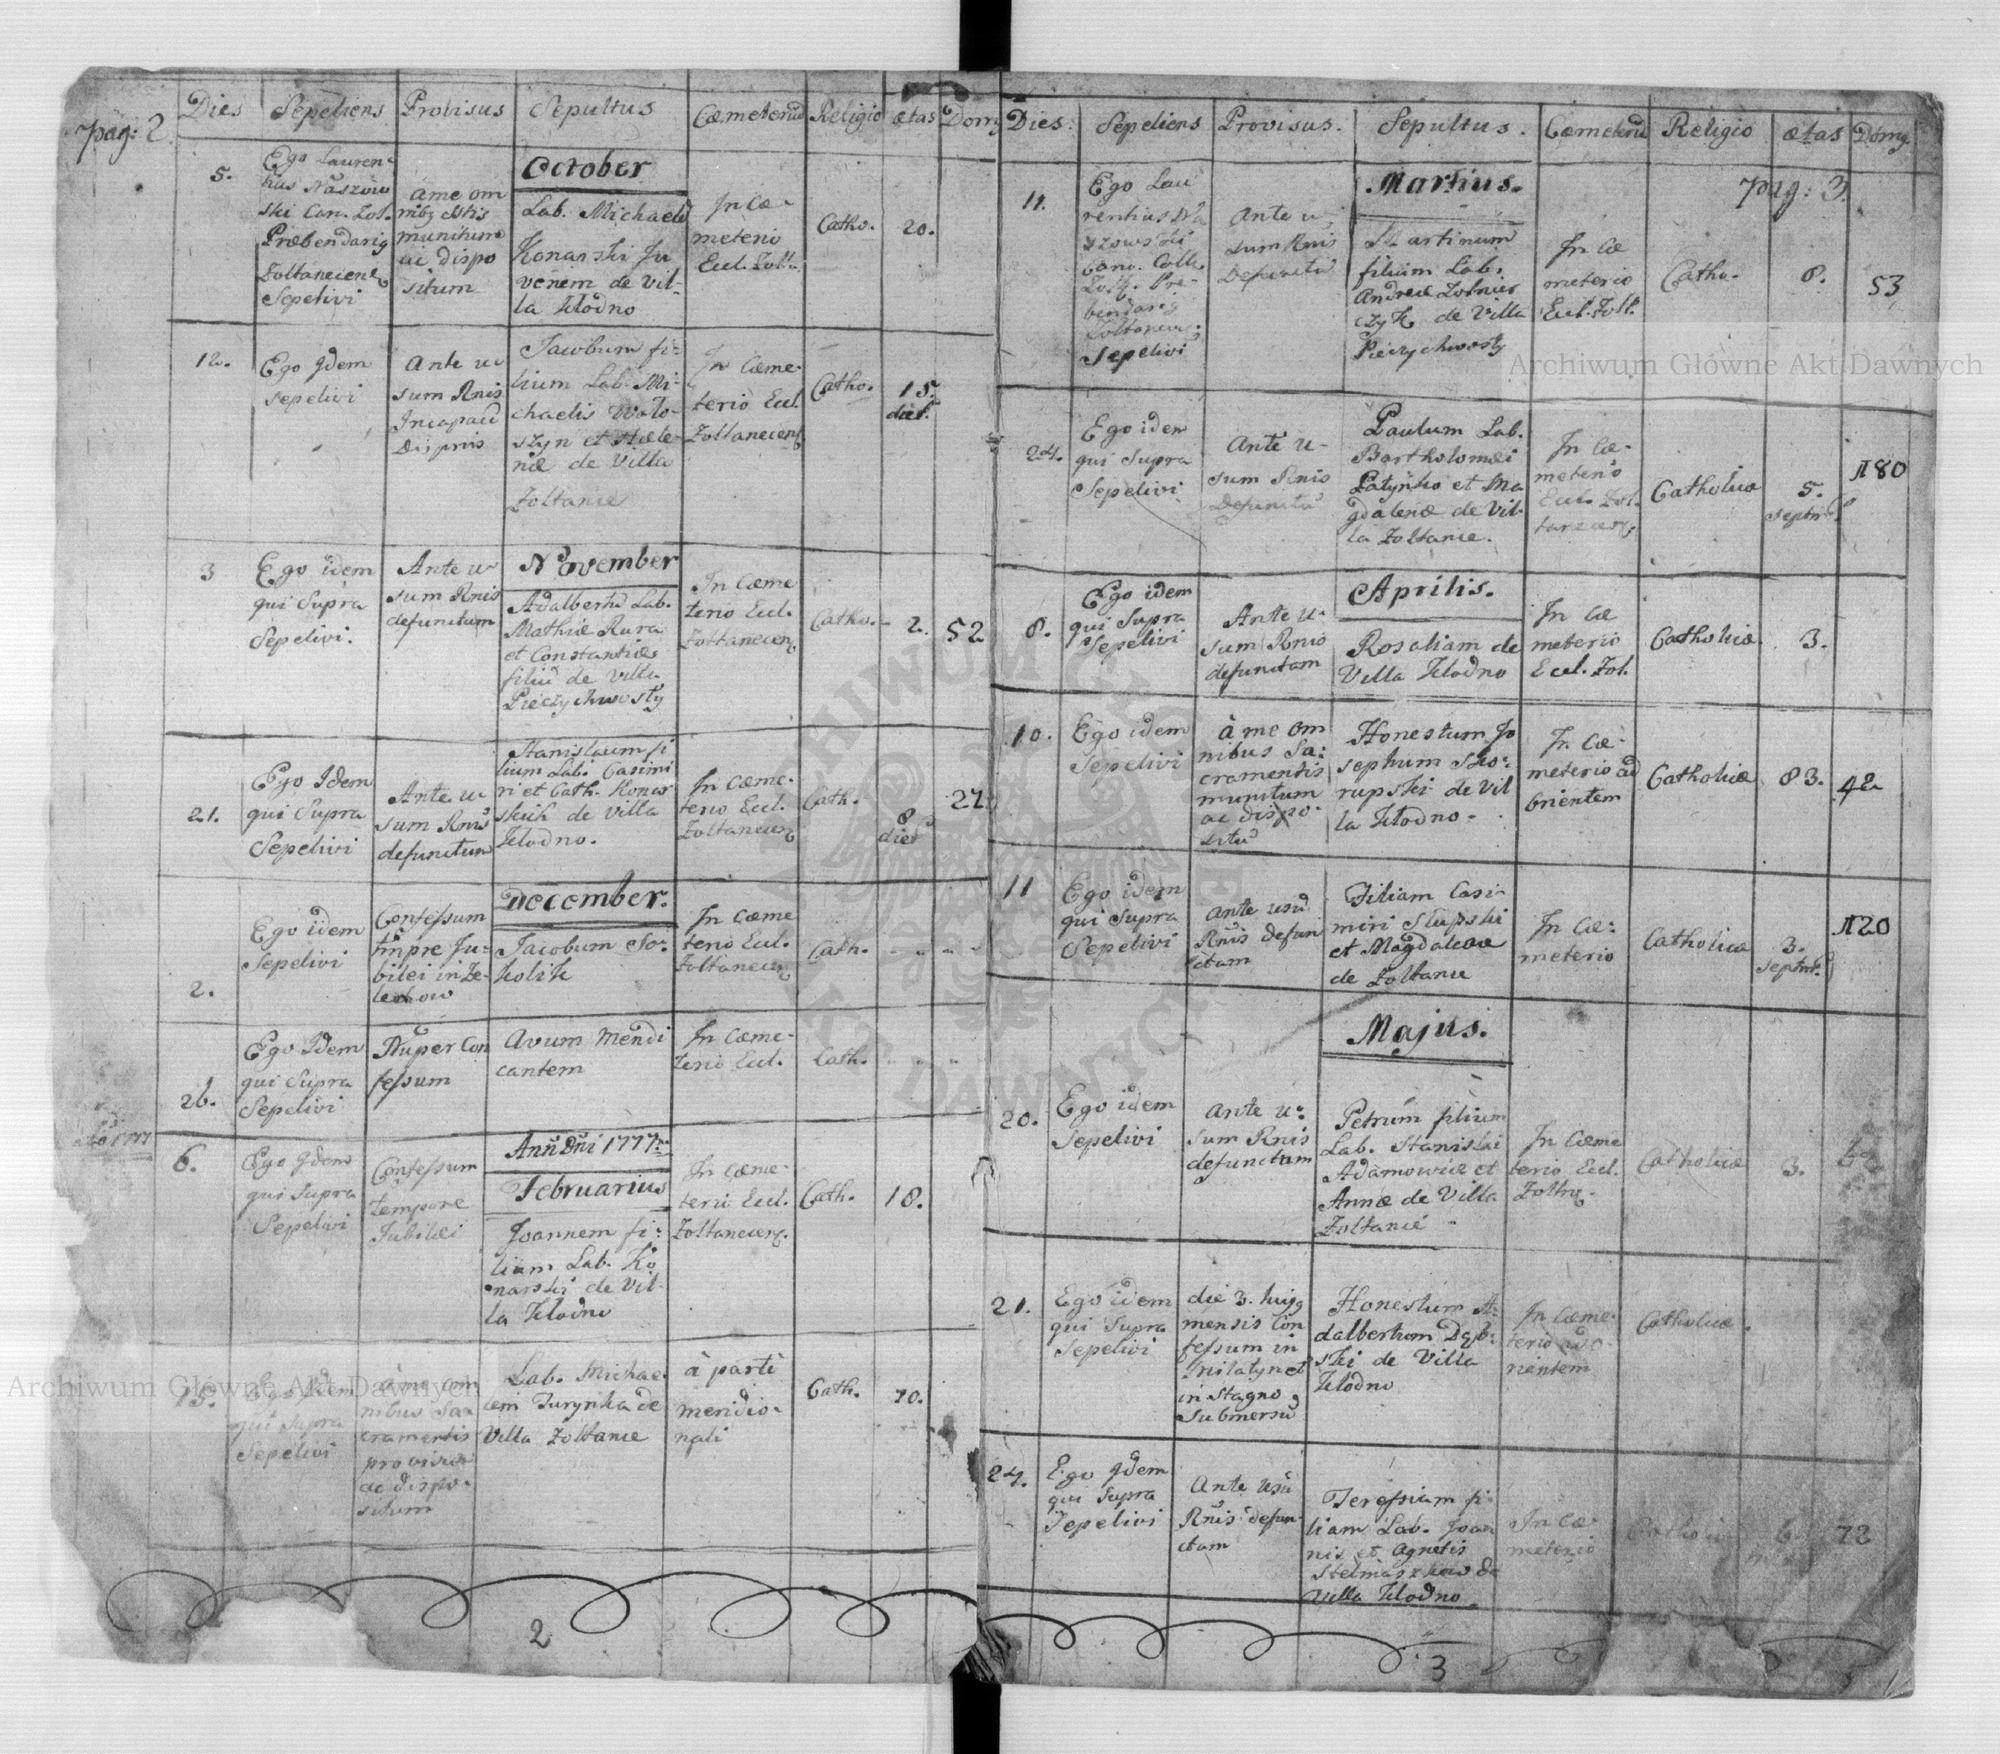 pag: 2.
Dies Sepeliens Provisus Sepultus Cæmeteriũ Religio ætas Domꝯ
October
5.
Ego Lauren-
tius Naszow
ski Can. Zol.
Præbendariꝯ
Zoltanecenꝭ
Sepelivi
à me om
nibꝯ
munitum
ac dispo
situm
Lab. Michaelẽ
Konarski Ju
venem de Vil-
la Kłodno
In Cæ-
meterio
Eccl. Zolta
Catho.
20.
12.
Ego Idem
sepelivi
Ante u
sum Rnis
Incapacẽ
Jacobum fi-
lium Lab. Mi-
chaelis Woło-
szyn et Hele-
næ de Villa
Zoltance
In Cæme-
terio Eccl.
Zoltanecenꝭ
Catho.
15.
dier.
3
Ego idem
qui Supra
Sepelivi.
Ante u
sum Rnis
defunctum
November
Adalbertũ Lab.
Mathiæ Rura
et Constantiæ
filiũ de Villa
Pieczychwosty
In Cæme
terio Eccl.
Zoltanecenꝭ
Catho.
2.
52
21.
Ego Idem
qui Supra
Sepelivi
Ante u
sum Rnis
defunctum
Stanislaum fi
lium Lab. Casimi
ri et Cath. Konar
skich de Villa
Kłodno.
In Cæme-
terio Eccl.
Zoltanecenꝭ
Cath.
8
dier
27
2.
Ego idem
Sepelivi
Confessum
tmpre Ju-
bilei in Ze-
lechow
December.
Jacobum So-
kolik
In Cæme
terio Eccl.
Zoltanecenꝭ
Cath.
26.
Ego Idem
qui Supra
Sepelivi
Nuper Con
fessum
Avum Mendi
cantem
In Cæme-
terio Eccl.
Cath.
Aõ 1777
6.
Ego Idem
qui Supra
Sepelivi
Confessum
tempore
Jubilei
Anñ Dñi 1777.
Februarius
Joannem fi-
lium Lab. Ko
narski de Vil-
la Kłodno
In Cæme-
terio Eccl.
Zoltanecenꝭ.
Cath.
18.
13.
Ego Idem
qui Supra
Sepelivi
à me om
nibus Sa-
cramentis
provisum
ac dispo-
situm
Lab. Michae-
lem Turynka de
Villa Zoltance
à parti
meridio-
nali
Cath.
70.
2
Dies. Sepeliens Provisus. Sepultus. Cæmeteriũ Religio ætas Domꝯ
pag: 3.
Martius.
11.
Ego Lau
rentius Na
szowski
Cano. Colle.
Zolk. Præ-
bendariꝯ
Zoltanecen.
Sepelivi
Ante u
sum Rnis
Defunctũ
Martinum
filium Lab.
Andreæ Zolnier
czyk de Villa
Pieczychwosty
In Cæ
meterio
Eccl. Zolt.
Catho.
8.
53
24.
Ego idem
qui Supra
Sepelivi
Ante u-
sum Rnis
Defunctũ
Paulum Lab.
Bartholomæi
Latynko et Ma
gdalenæ de Vil-
la Zoltance.
In Cæ-
meterio
Eccl. Zol-
tanecenꝭ
Catholicæ
5.
septi
N80
Aprilis.
8.
Ego idem
qui Supra
Sepelivi
Ante u-
sum Rnis
defunctam
Rosaliam de
Villa Kłodno
In Cæ
meterio
Eccl. Zol.
Catholicæ
3.
10.
Ego idem
Sepelivi
à me om
nibus Sa-
cramentis
munitum
ac dispo-
sitũ
Honestum Jo
sephum Sko-
rupski de Vil
la Kłodno.
In Cæ-
meterio ad
Orientem
Catholicæ
83.
42
11
Ego idem
qui Supra
Sepelivi
Ante usũ
Rnis defun
ctam
Filiam Casi-
miri Słupski
et Magdalenæ
de Zoltance
In Cæ-
meterio
Catholicæ
3.
septm.
N20
Majus.
20.
Ego idem
Sepelivi
Ante u-
sum Rnis
defunctum
Petrum filium
Lab. Stanislai
Adamowicz et
Annæ de Villa
Zoltance
In Cæme
terio Eccl.
Zoltꝭ
Catholicæ
3.
21.
Ego idem
qui Supra
Sepelivi
die 3. hujꝯ
mensis Con
fessum in
et
in Stagno
Submersũ
Honestum A-
dalbertum
ski de Villa
Kłodno
In Cæme-
terio ad o-
rientem
Catholicæ.
24.
Ego Idem
qui Supra
Sepelivi
Ante Usũ
Rnis defun-
ctam
Teressiam fi-
liam Lab. Joan
nis et Agnetis
Stelmaszkow de
Villa Kłodno.
In Cæ-
meterio
72
3
Archiwum Główne Akt Dawnych
Archiwum Główne Akt Dawnych